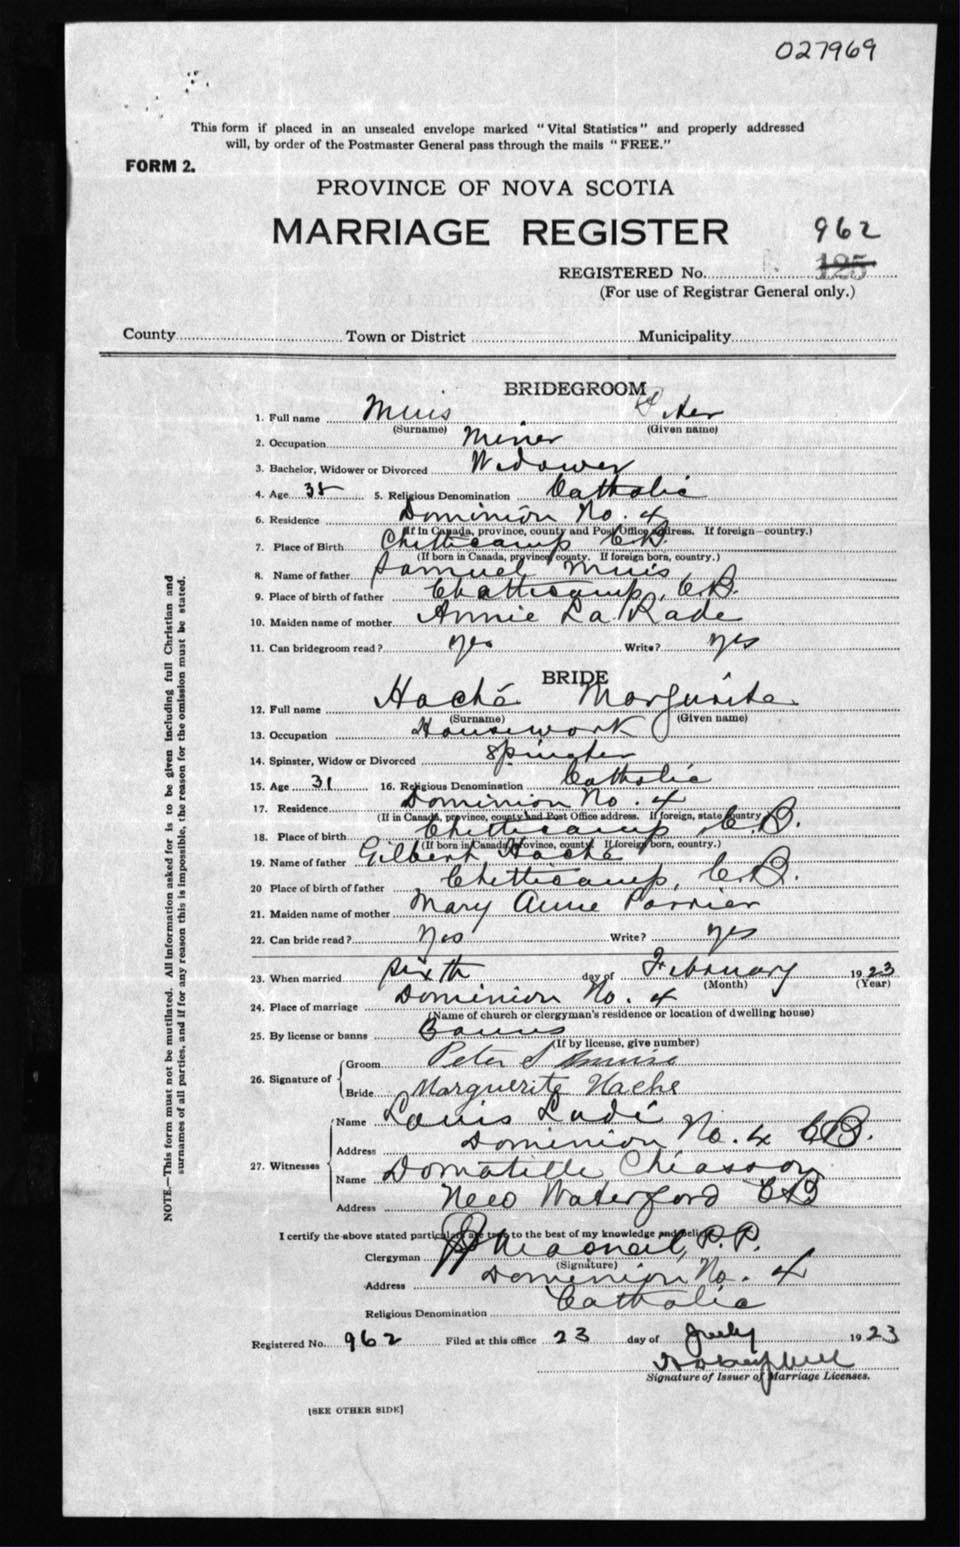 027969
This form if placed in an unsealed envelope marked "Vital Statistics" and properly addressed
will, by order of the Postmaster General pass through the mails "FREE."
FORM 2.
PROVINCE OF NOVA SCOTIA
MARRIAGE REGISTER
962
REGISTERED No. 125
(For use of Registrar General only.)
County Town or District Municipality
BRIDEGROOM
1. Full name Muis Peter
(Surname) (Given name)
2. Occupation Miner
3. Bachelor, Widower or Divorced Widower
4. Age 35 5. Religious Denomination Catholic
6. Residence Dominion No. 4
(If in Canada, province, county and Post Office address. If foreign—country.)
7. Place of Birth Chitticamp C.B.
(If born in Canada, province county. If foreign born, country.)
8. Name of father Samuel Muis
9. Place of birth of father Chatticamp, C.B.
10. Maiden name of mother Annie La Rade
11. Can bridegroom read? yes Write? yes
BRIDE
12. Full name Haché Margurite
(Surname) (Given name)
13. Occupation Housework
14. Spinster, Widow or Divorced Spinster
15. Age 31 16. Religious Denomination Catholic
17. Residence Dominion No. 4
(If in Canada, province, county and Post Office address. If foreign, state country
18. Place of birth Chitticamp, C.B.
(If born in Canada, province, county. If foreign born, country.)
19. Name of father Gilbert Haché
20 Place of birth of father Chitticamp, C.B.
21. Maiden name of mother Mary Anne Porrier
22. Can bride read? Yes Write? yes
23. When married sixth day of February 1923
(Month) (Year)
24. Place of marriage Dominion No. 4
(Name of church or clergyman's residence or location of dwelling house)
25. By license or banns Banns
(If by license, give number)
26. Signature of Groom Peter S
Bride Marguerite Hache
27. Witnesses Name Louis Ludé
Address Dominion No. 4 C.B.
Name Domatille Chiasson
Address New Waterford CB
I certify the above stated particulars are true to the best of my knowledge and belief.
Clergyman P.P.
(Signature)
Address Dominion No. 4
Religious Denomination Catholic
Registered No. 962 Filed at this office 23 day of July 1923
Signature of Issuer of Marriage Licenses.
[SEE OTHER SIDE]
NOTE.—This form must not be mutilated. All information asked for is to be given including full Christian and
surnames of all parties, and if for any reason this is impossible, the reason for the omission must be stated.